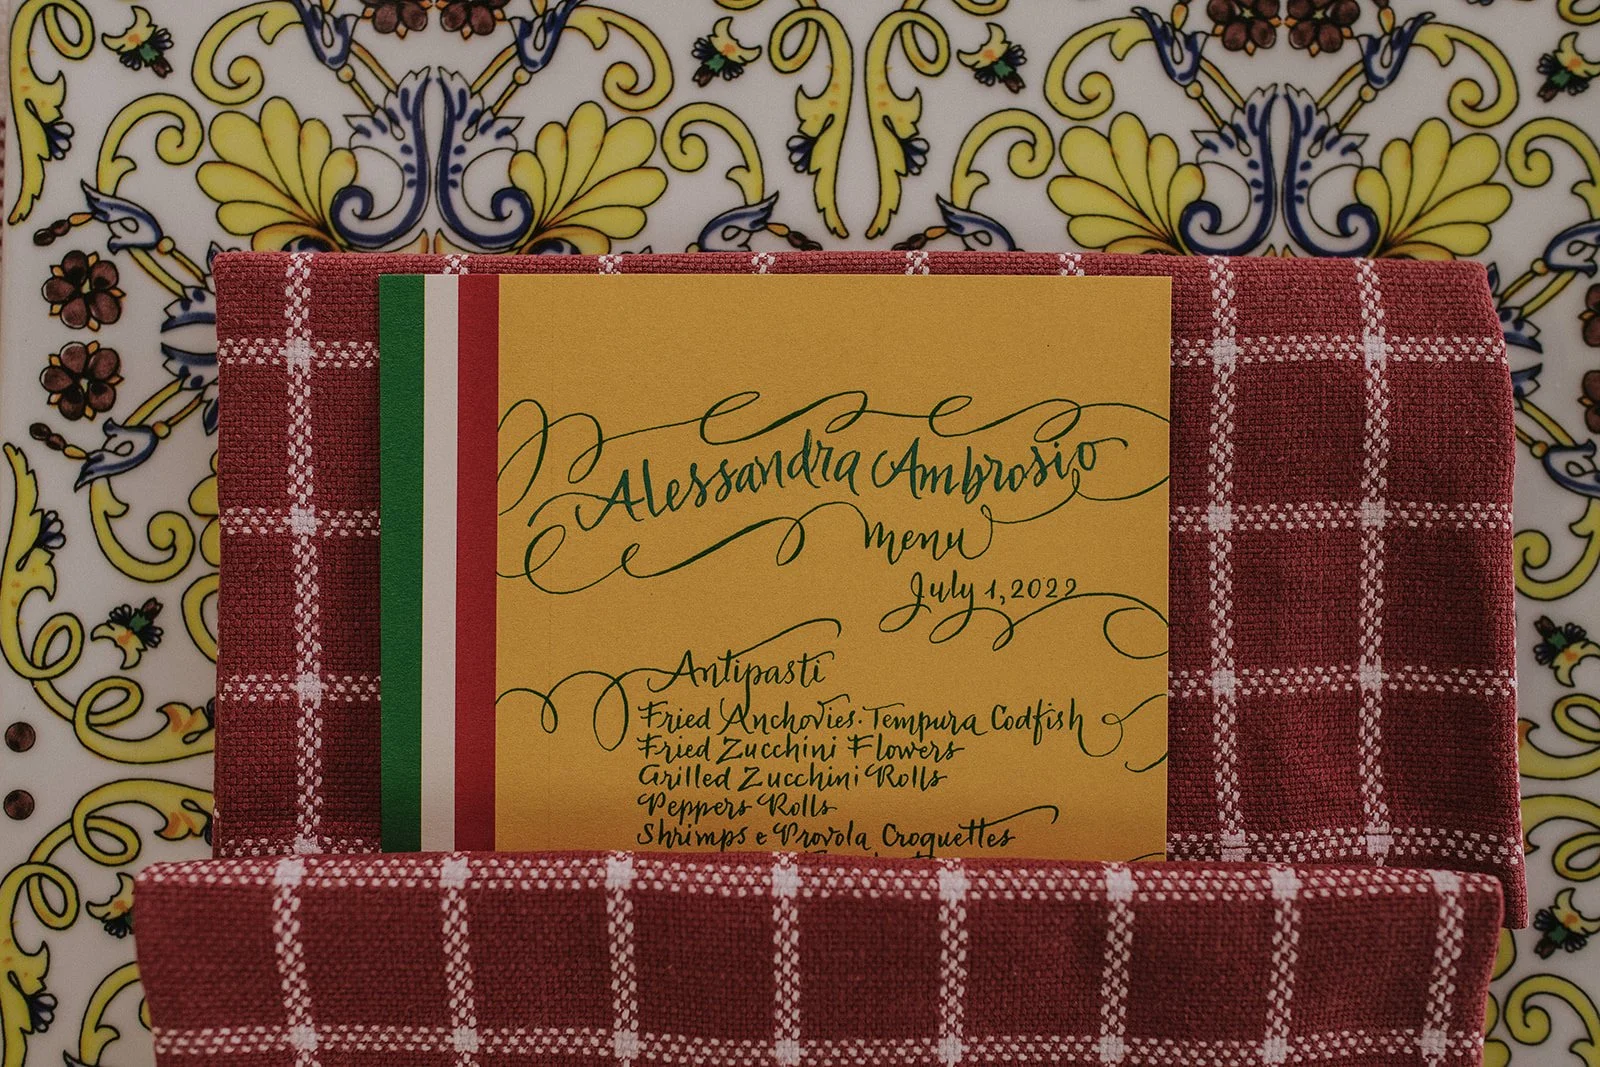 Alessandra Ambrosio
Menu
July 1, 2022
Antipasti
Fried Anchovies · Tempura Codfish
Fried Zucchini Flowers
Grilled Zucchini Rolls
Peppers Rolls
Shrimps e Provola Croquettes